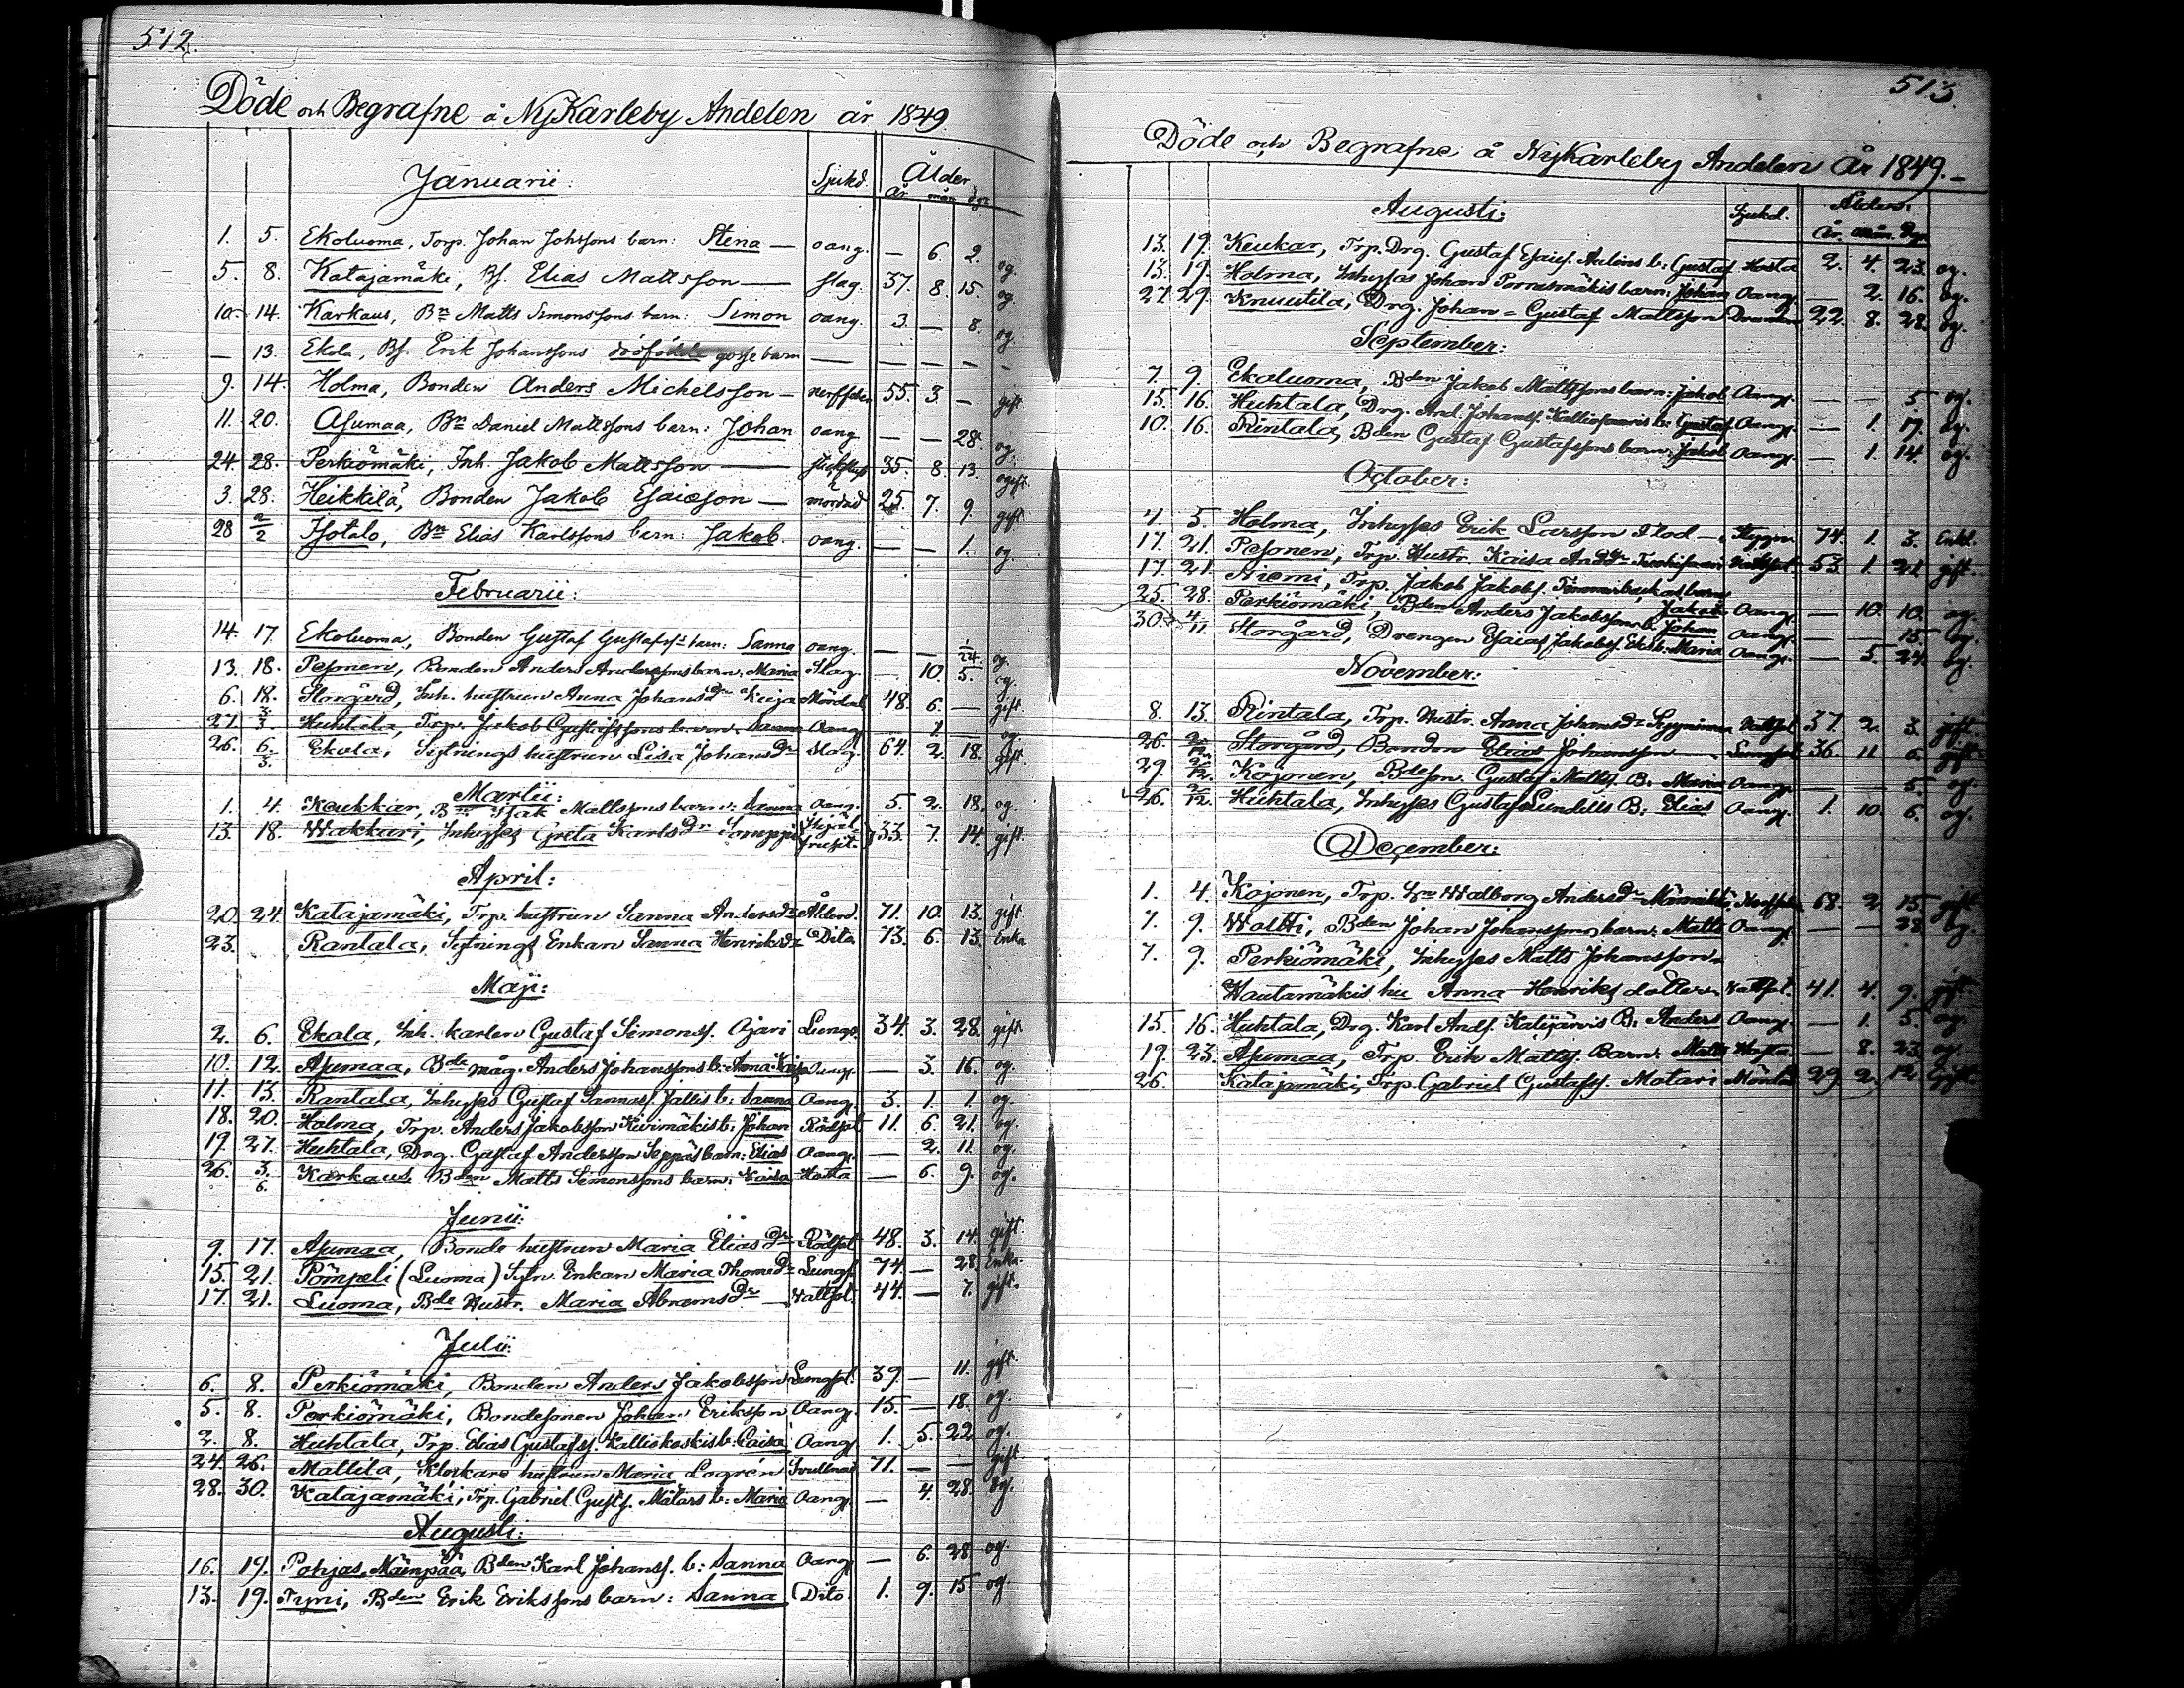 512.
Döde och Begrafne å NyKarleby Andelen år 1849.
Januarii: Sjukd. Ålder
år mån dgr
1. 5. Ekoluoma, Torp. Johan Johssons barn: Stena — oang. — 6. 2. og.
5. 8. Katajamäki, Bs. Elias Mattsson — slag. 37. 8. 15. og.
10. 14. Karkaus, Bn Matts Simonssons barn: Simon oang. 3. — 8. og.
— 13. Ekola, Bs. Erik Johanssons dödfödde gosse barn — — — —
9. 14. Holma, Bonden Anders Michelsson — nerffeber 55. 3. — gift.
11. 20. Asumaa, Bn Daniel Mattssons barn: Johan oang — — 28. og.
24. 28. Perkiömäki, Inh. Jakob Mattsson — 35. 8. 13. ogift.
3. 28. Heikkilä, Bonden Jakob Esaiæson — mördad 25. 7. 9. gift.
28 2/2 Isotalo, Bn Elias Karlssons barn: Jakob. oang. — — 1. og.
Februarii:
14. 17. Ekoluoma, Bonden Gustaf Gustafss barn: Sanna oang. — — 24. og.
13. 18. Pesonen, Bonden Anders Anderssons barn: Maria Slag. — 10. 5. og.
6. 18. Storgård, Inh. hustrun Anna Johansdr Keija Mördad 48. 6. — gift.
27. 3/3 Huhtala, Torp. Jakob Gustafssons barn: Sanna Oang. 1 — og.
26. 6/3. Ekola, Sytnings hustrun Lisa Johansdr Slag. 64. 2. 18. gift.
Martii:
1. 4. Keukkar, Bn Isak Mattssons barn: Sanna Oang. 5. 2. 18. og.
13. 18. Wakkari, Inhyses Greta Karlsdr Somppi 33. 7. 14. gift.
April:
20. 24. Katajamäki, Trp. hustrun Sanna Andersdr Ålderd. 71. 10. 13. gift.
23. Rantala, Sytnings Enkan Sanna Henriksdr Dito 73. 6. 13. Enka.
Maji:
2. 6. Ekola, Inh. karlen Gustaf Simonss. Ojari Lungs. 34. 3. 28. gift.
10. 12. Asumaa, Bde måg. Anders Johanssons b: Anna Kaisa Oang. — 3. 16. og.
11. 13. Rantala, Inhyses Gustaf Jallis b: Sanna Oang. 3. 1. 1. og.
18. 20. Holma, Trp. Anders Jakobsson Kivimäkis b: Johan Rödsot 11. 6. 21. og.
19. 27. Huhtala, Drg. Gustaf Andersson Seppäs barn: Elias Oang. — 2. 11. og.
26. 3/6. Karkaus, Bden Matts Simonssons barn: Kaisa Hosta — 6. 9. og.
Junii:
9. 17. Asumaa, Bonde hustrun Maria Eliasdr Rödsot 48. 3. 14. gift.
15. 21. Pömpeli (Luoma) Sytn. Enkan Maria Thomedr Lungs. 74. — 28 Enka.
17. 21. Luoma, Bde Hustr. Maria Abramsdr — Wattsot. 44. — 7. gift.
Julii:
6. 8. Perkiömäki, Bonden Anders Jakobsson Lungsot. 39. — 11. gift.
5. 8. Perkiömäki, Bondesonen Johan Eriksson Oang. 15. — 18. og.
2. 8. Huhtala, Trp. Elias Gustafss. Kalliokoskis b: Caisa Oang 1. 5. 22. og.
24. 26. Mattila, Klockare hustrun Maria Logrén Svullnad 71. — — gift.
28. 30. Katajamäki, Trp. Gabriel Gustss. Mätars b: Maria Oang. — 4. 28. og.
Augusti:
16. 19. Pohjas Mäenpää, Bden Karl Johanss. b: Sanna Oang — 6. 28 og.
13. 19. Tyni, Bden Erik Erikssons barn: Sanna Dito 1. 9. 15 og.
513.
Döde och Begrafne å NyKarleby Andelen År 1849.
Augusti: Sjukd. Ålder.
År. mån. Dgr.
13. 19. Keukar, Trp. Drg. Gustaf Esaies. b: Gustaf Hosta 2. 4. 23. og.
13. 19. Holma, Inhyses Johan Pornasmäkis barn: Johan Oang. — 2. 16. og.
27. 29. Knuutila, Drg. Johan-Gustaf Mattsson 22. 8. 28. og.
September:
7. 9. Ekoluoma, Bden Jakob Mattssons barn: Jakob Oang. — — 5 og.
15. 16. Huhtala, Drg. And. Johanss. Kalliojärvis b: Gustaf Oang. — 1. 17. og.
10. 16. Rintala, Bden Gustaf Gustafssons barn: Jakob Oang. — 1. 14. og.
October:
4. 5. Holma, Inhyses Erik Larsson Flod — 74. 1. 3. Enkl.
17. 21. Pesonen, Trp. Hustr. Kaisa Andsdr Wattsot. 53. 1. 21. gift.
17. 21. Niemi, Trp. Jakob Jakobs. Timmerbackas barn Jakob Oang. — 10. 10. og.
25. 28. Perkiömäki, Bden Anders Jakobssons b. Johan Oang. — — 15 og.
30. 4/11. Storgård, Drengen Esaias Jakobss. Ekeb: Maria Oang. — 5. 24. og.
November:
8. 13. Rintala, Trp. Hustr. Anna Johansdr Wattsot 37. 2. 3. gift.
26. 2/12. Storgård, Bonden Elias Johansson — Lungsot 36. 11 6. gift.
29. 2/12. Kojonen, Bdeson Gustaf Matts. B: Maria Oang. — — 5. og.
26. 2/12. Huhtala, Inhyses Gustaf Lundells B: Elias Oang. 1. 10. 6. og.
December:
1. 4. Kojonen, Trp. Hu Walborg Andersdr 68. 2. 15 gift.
7. 9. Waltti, Bden Johan Johanssons barn: Matts Oang. — — 28 og.
7. 9. Perkiömäki, Inhyses Matts Johansson-
Wautamäkis hu Anna Henriks dotter Wattsot. 41. 4. 9. gift
15. 16. Huhtala, Drg. Karl Ands. Katijärvis B: Anders Oang — 1. 5. og.
19. 23. Asumaa, Trp. Erik Matts. Barn: Matts Hosta — 8. 23. og.
26. Katajamäki, Trp. Gabriel Gustafss. Motari 29. 2. 12. Gift.